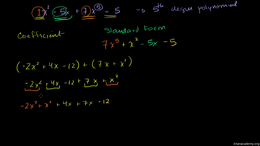 1x² - 5x + 7x⁵ - 5 → 5th degree polynomial
Coefficient
Standard Form
7x⁵ + x² - 5x - 5
(-2x² + 4x - 12) + (7x + x²)
-2x² + 4x - 12 + 7x + x²
-2x² + x² + 4x + 7x - 12
khanacademy.org